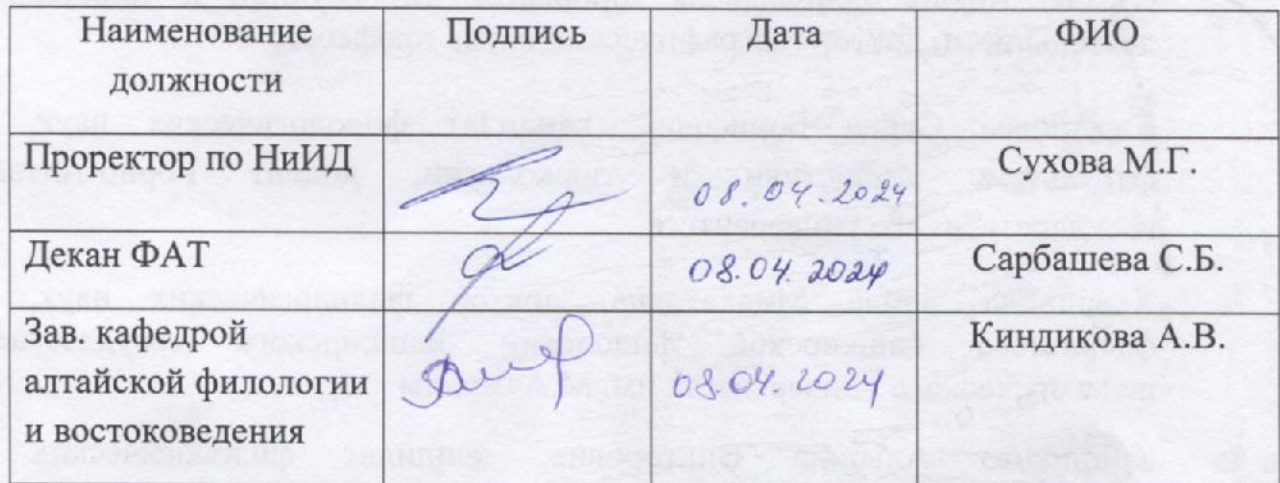 Наименование должности Подпись Дата ФИО
Проректор по НиИД 08.04.2024 Сухова М.Г.
Декан ФАТ 08.04.2024 Сарбашева С.Б.
Зав. кафедрой алтайской филологии и востоковедения 08.04.2024 Киндикова А.В.